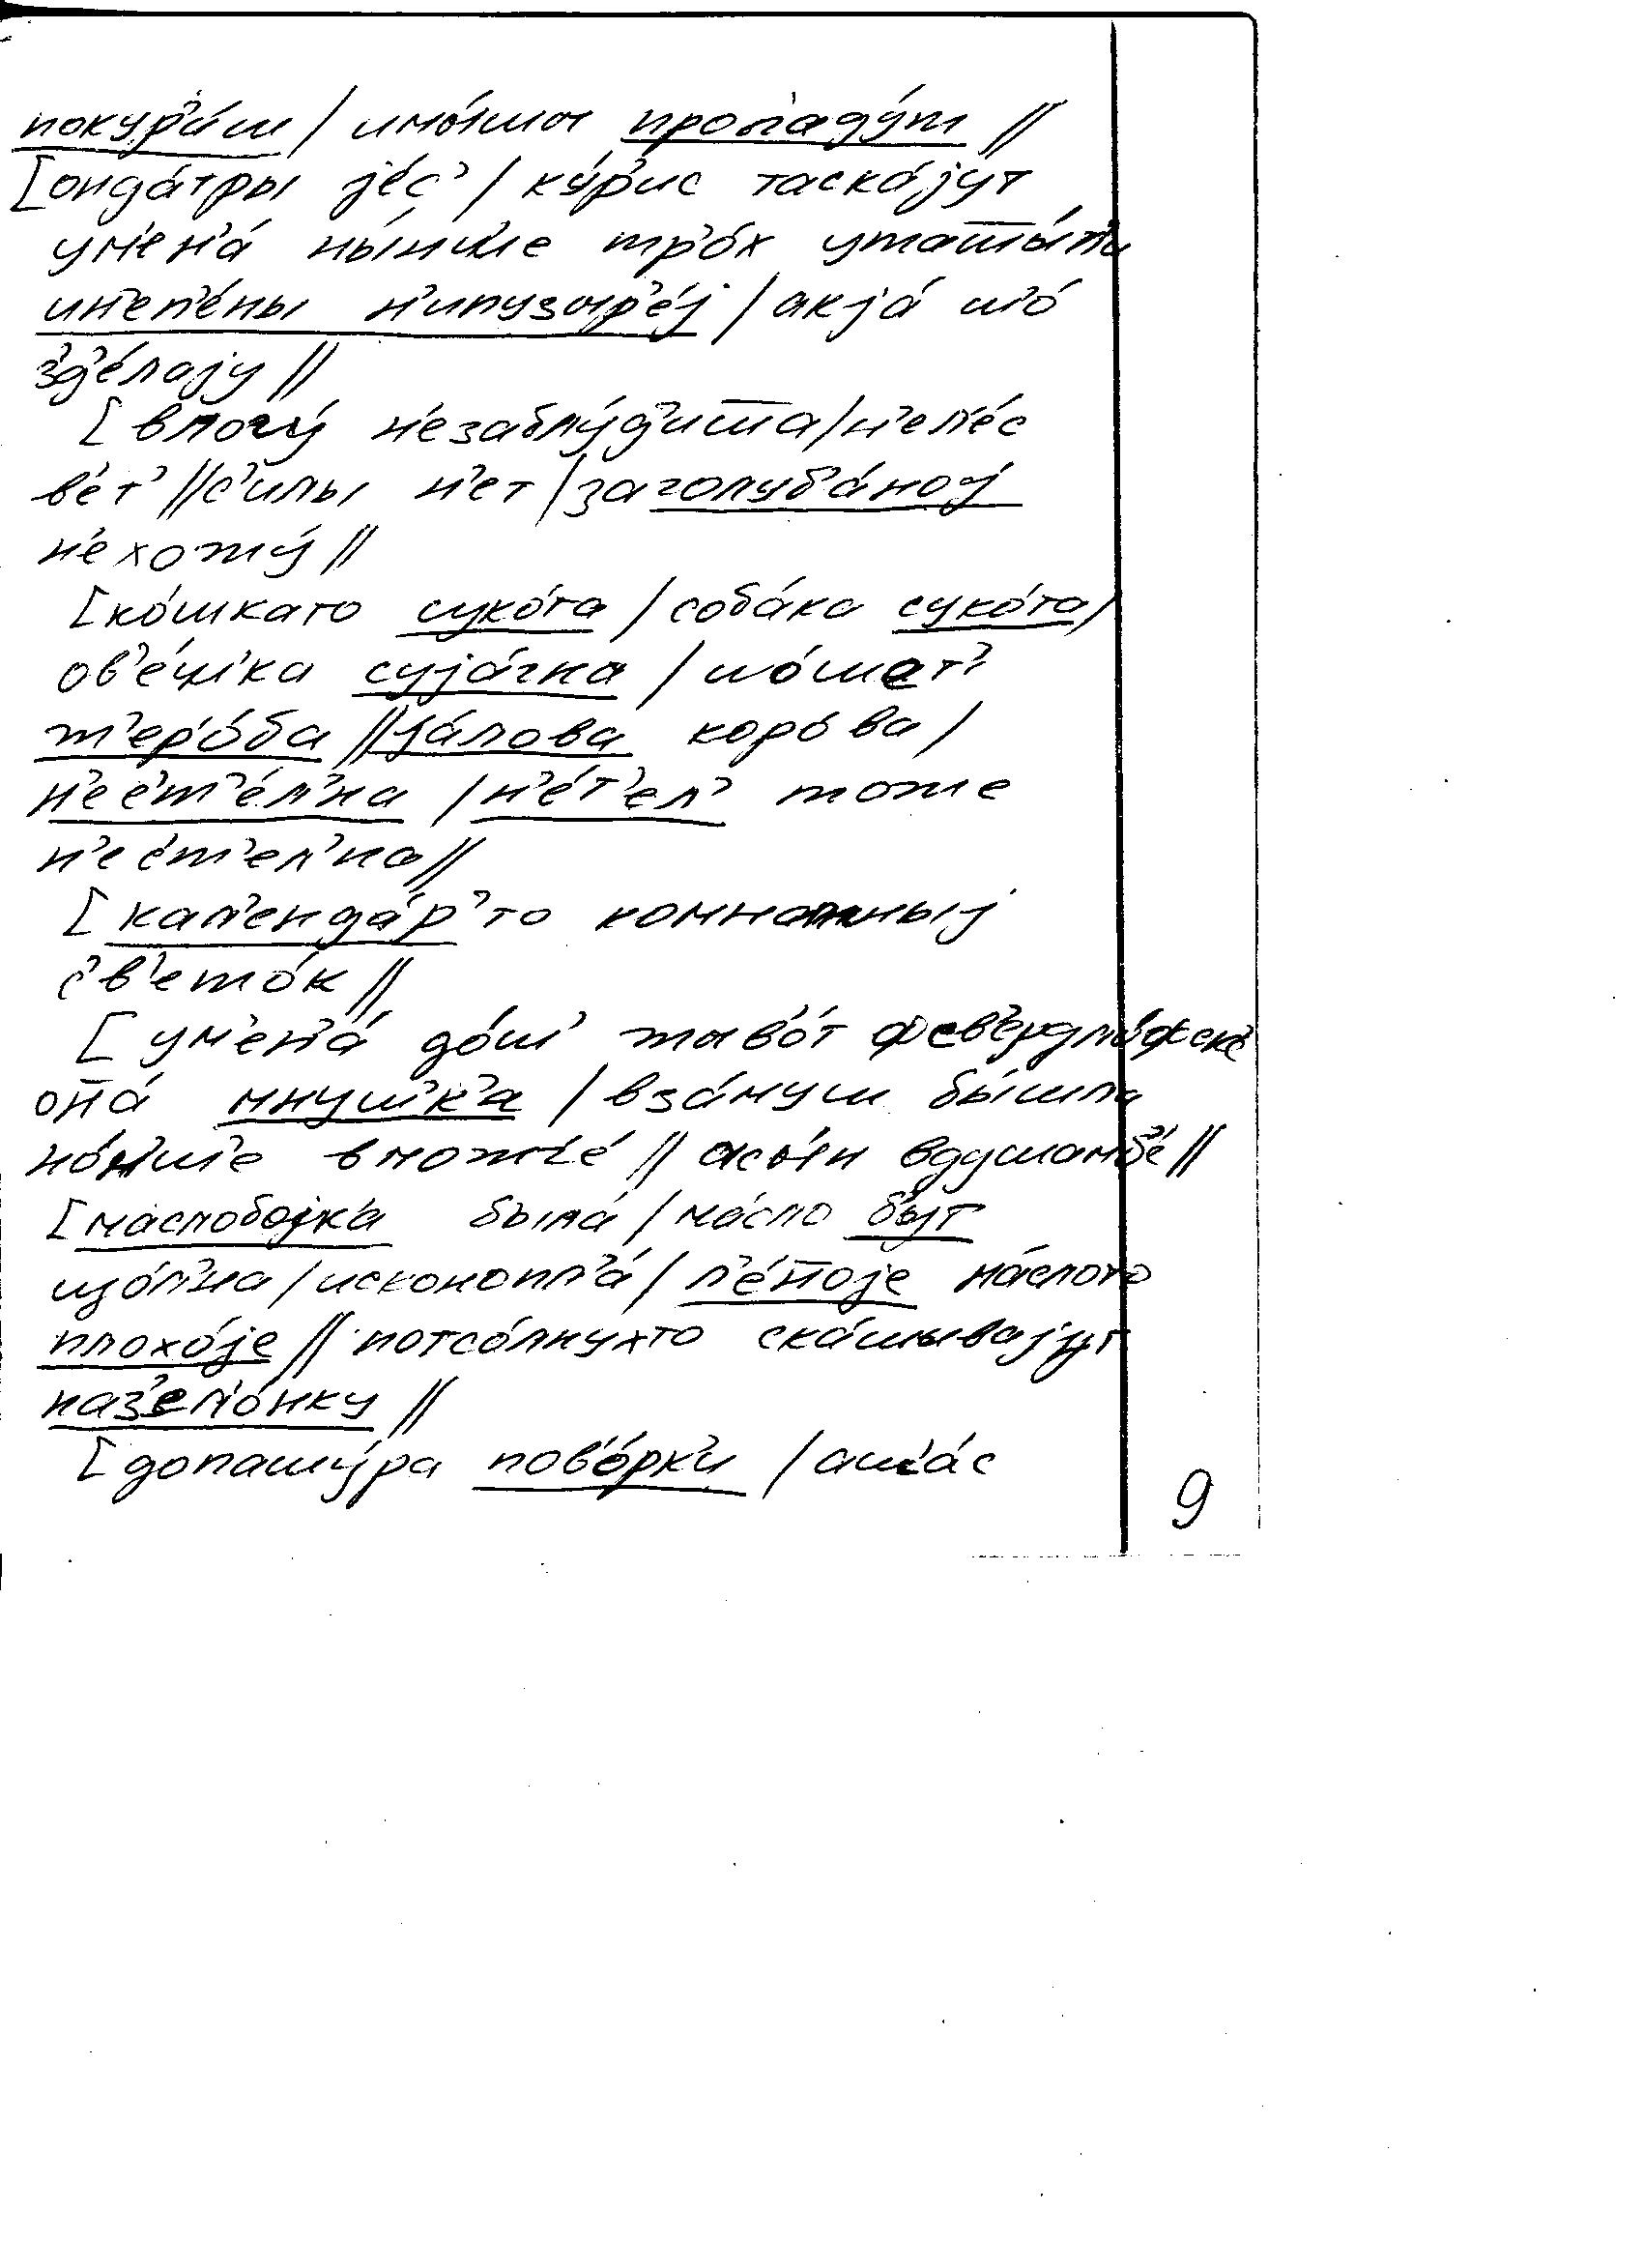 покур'и́ш / имы́шы пропаду́т //
[онда́тры jéс' / ку́р'ис таска́jут
ум'ен'а́ ны́н'ш'е тр'о́х утащ̅ы́л'и
ин'еп'е́ны н'ипузыр'е́j / акjа́ ш'о́
з'д'е́лаjу //
[ влогу́ н'езаблу́д'ит̅а / н'ел'е́с
в'е́т' // с'и́лы н'ет / заголуб'а́ноj
н'ехожу́ //
[ко́шкато суко́та / соба́ка суко́та /
ов'е́ч'ка суjа́гна / ло́шат'
ж'ер'о́ба // jа́лова коро́ва /
н'ес'т'е́л'на / н'е́т'ел' тоже
н'ес'т'ел'на //
[ кал'енда́р'то комнатныj
с'в'ето́к //
[ ум'ен'а́ до́ш' жыв'о́т
она́ мнуш'к'а / вза́муш вы́шла
// асы́н вдушамб'е́ //
[маслобоjка была́ / ма́сло б'jут
/ископопл'а́ / л'е́н̅оjе ма́слото
плохо́jе // потсо́лнухто ска́шываjут
наз'ел'о́нку //
[допашу́ра пов'о́рк'и / аш'а́с
9